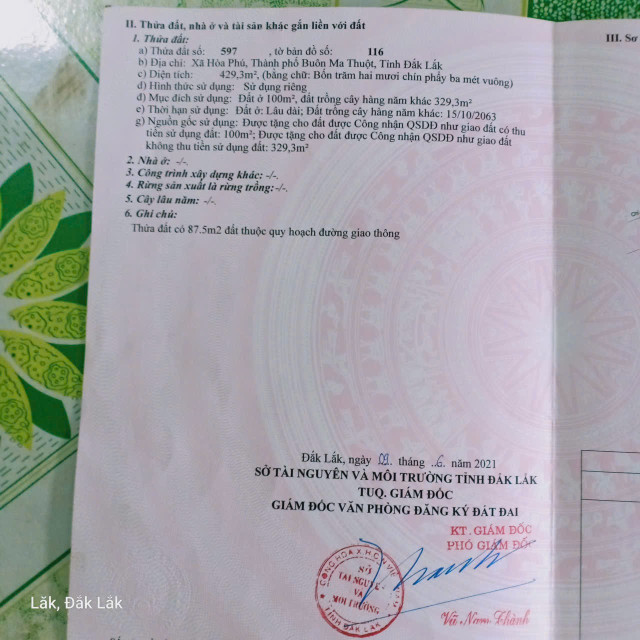 II. Thửa đất, nhà ở và tài sản khác gắn liền với đất
III. Sơ
1. Thửa đất:
a) Thửa đất số: 597 , tờ bản đồ số: 116
b) Địa chỉ: Xã Hòa Phú, Thành phố Buôn Ma Thuột, Tỉnh Đắk Lắk
c) Diện tích: 429,3m², (bằng chữ: Bốn trăm hai mươi chín phẩy ba mét vuông)
d) Hình thức sử dụng: Sử dụng riêng
đ) Mục đích sử dụng: Đất ở 100m², đất trồng cây hàng năm khác 329,3m²
e) Thời hạn sử dụng: Đất ở: Lâu dài; Đất trồng cây hàng năm khác: 15/10/2063
g) Nguồn gốc sử dụng: Được tặng cho đất được Công nhận QSDĐ như giao đất có thu
tiền sử dụng đất: 100m²; Được tặng cho đất được Công nhận QSDĐ như giao đất
không thu tiền sử dụng đất: 329,3m²
2. Nhà ở: -/-.
3. Công trình xây dựng khác: -/-.
4. Rừng sản xuất là rừng trồng:-/-.
5. Cây lâu năm: -/-.
6. Ghi chú:
Thửa đất có 87.5m2 đất thuộc quy hoạch đường giao thông
Đắk Lắk, ngày 09 tháng 6 năm 2021
SỞ TÀI NGUYÊN VÀ MÔI TRƯỜNG TỈNH ĐẮK LẮK
TUQ. GIÁM ĐỐC
GIÁM ĐỐC VĂN PHÒNG ĐĂNG KÝ ĐẤT ĐAI
KT. GIÁM ĐỐC
PHÓ GIÁM ĐỐC
SỞ
TÀI NGUYÊN
VÀ
MÔI TRƯỜNG
TỈNH ĐẮK LẮK
Vũ Nam Thành
Lăk, Đăk Lăk